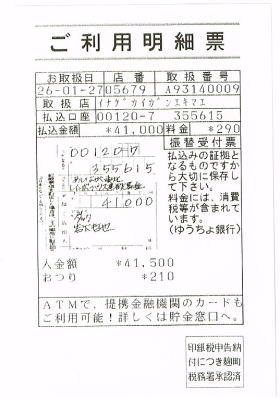 ご利用明細票
お取扱日 店番 取扱番号
26-01-27 05679 A93140009
取扱店 イナゲカイガンエキマエ
払込口座 00120-7 355615
払込金額 *41,000 料金 *290
振替受付票
払込みの証拠と
なるものですか
ら大切に保存し
て下さい。
料金には、消費
税等が含まれて
います。
(ゆうちょ銀行)
00120 7
355615
41000
入金額 *41,500
おつり *210
ATMで、提携金融機関のカードも
ご利用可能!詳しくは貯金窓口へ。
印紙税申告納
付につき麹町
税務署承認済